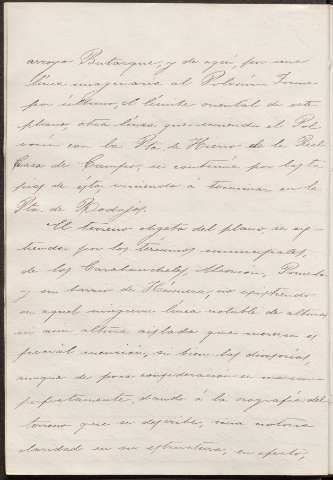 arroyo Butarque, y de aquí, por una
línea imaginaria al Polvorín. Forma
por último, el límite oriental de este
plano, otra línea que uniendo el Pol
vorín con la Pta. de Hierro de la Real
Casa de Campo, se continúa por las ta
pias de ésta, viniendo á terminar en la
Pta. de Rodajos.
El terreno objeto del plano, se ex
tiende por los términos municipales,
de los Carabancheles, Alarcón, Pozuelo
y un barrio de Húmera, no existiendo
en aquel ninguna línea notable de alturas
ni aun altura aislada que merezca es
pecial mención, si bien las divisorias,
aunque de poca consideración se marcan
perfectamente, dando á la orografía del
terreno que se describe, una notoria
claridad en su estructura; en efecto,